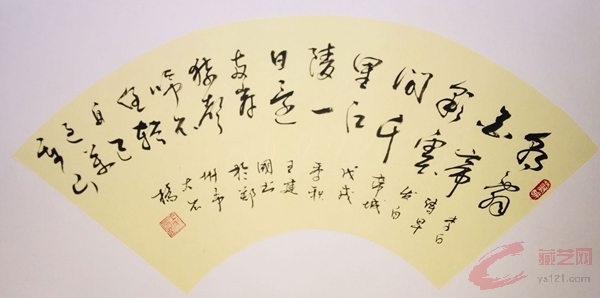 朝辭
白帝
彩雲
間千
里江
陵一
日還
兩岸
猿聲
啼不
住輕
舟已
過萬
重山
李白
詩早
发白
帝城
戊戌
季秋
王建
國书
於鄭
州市
大石
橋
藏艺网
ys121.com